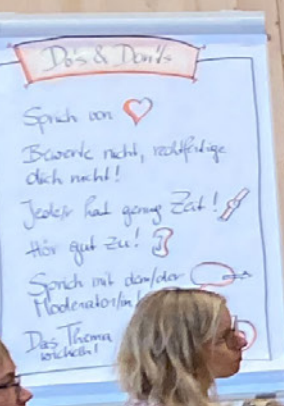 Do's & Don'ts
Sprich von
Bewerte nicht, rechtfertige
dich nicht!
Jede/r hat genug Zeit!
Hör gut zu!
Sprich mit dem/der
Moderator/in
Das Thema